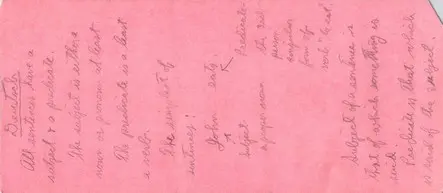 Deutsch
All sentences have a
subject & a predicate.
The subject is either a
noun or pronoun at least
The predicate is a least
a verb.
The simplest of
sentences:
John eats.
Subject
a proper noun
Predicate
the 3rd
person
singular
form of
verb to eat
Subject of a sentence is
that of which something is
said.
Predicate is that which
is said of the subject.